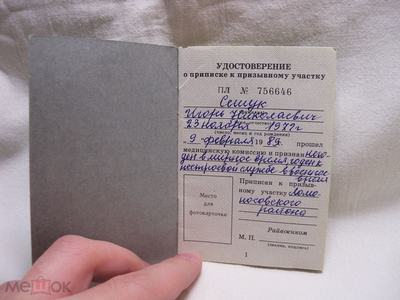 УДОСТОВЕРЕНИЕ
о приписке к призывному участку
ПЛ № 756646
Сешук
Игорь Николаевич
23 ноября 1972г
(число, месяц и год рождения)
9 февраля 1989. прошел
медицинскую комиссию и признан него-
ден в мирное время, годен к
нестроевой службе в военное
время
Приписан к призыв-
ному участку Ломо-
носовского
района
Место
для
фотокарточки
Райвоенком
М. П.
(звание, подпись)
1
Мешок